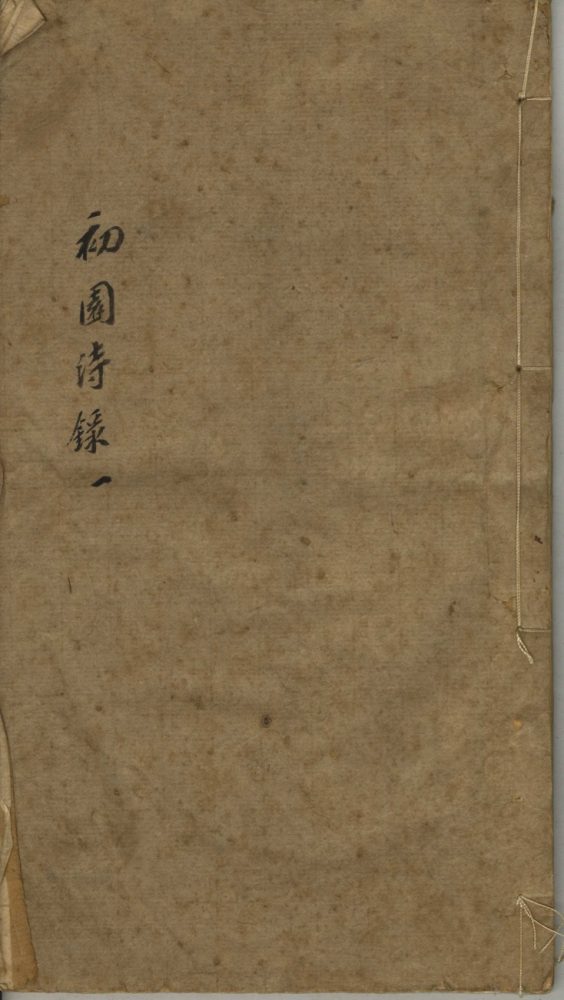 初園詩錄一